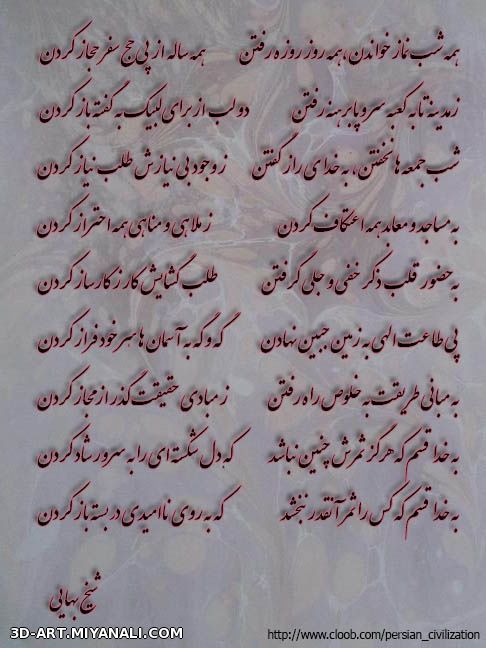 همه شب نماز خواندن، همه روز روزه رفتن همه ساله از پی حج سفر حجاز کردن
ز مدینه تا به کعبه سر و پا برهنه رفتن دو لب از برای لبیک به گفته باز کردن
شب جمعه ها نخفتن، به خدای راز گفتن ز وجود بی نیازش طلب نیاز کردن
به مساجد و معابد همه اعتکاف کردن ز ملاهی و مناهی همه احتراز کردن
به حضور قلب ذکر خفی و جلی گرفتن طلب گشایش کار ز کارساز کردن
پی طاعت الهی به زمین جبین نهادن گه و گه به آسمان ها سر خود فراز کردن
به مبانی طریقت به خلوص راه رفتن ز مبادی حقیقت گذر از مجاز کردن
به خدا قسم که هرگز ثمرش چنین نباشد که دل شکسته ای را به سرور شاد کردن
به خدا قسم که کس را ثمر آنقدر نبخشد که به روی ناامیدی در بسته باز کردن
شیخ بهایی
3D-ART.MIYANALI.COM
http://www.cloob.com/persian_civilization